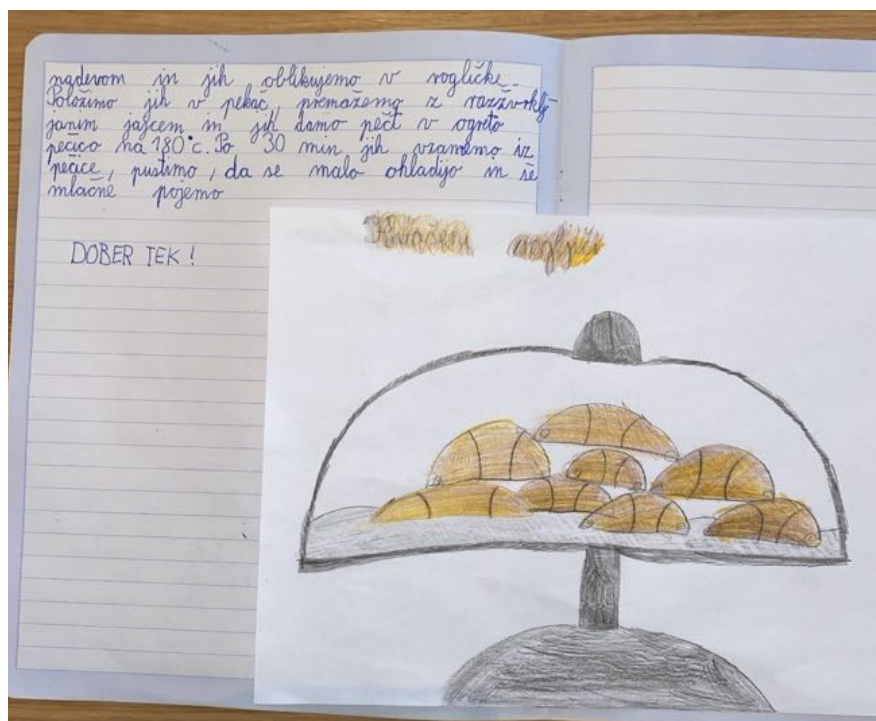 nadevom in jih oblikujemo v rogličke.
Položimo jih v pekač, premažemo z razžvrklj-
janim jajcem in jih damo pečt v ogreto
pečico na 180°c. Po 30 min jih vzamemo iz
pečice, pustimo, da se malo ohladijo in še
mlačne pojemo
DOBER TEK!
roglji